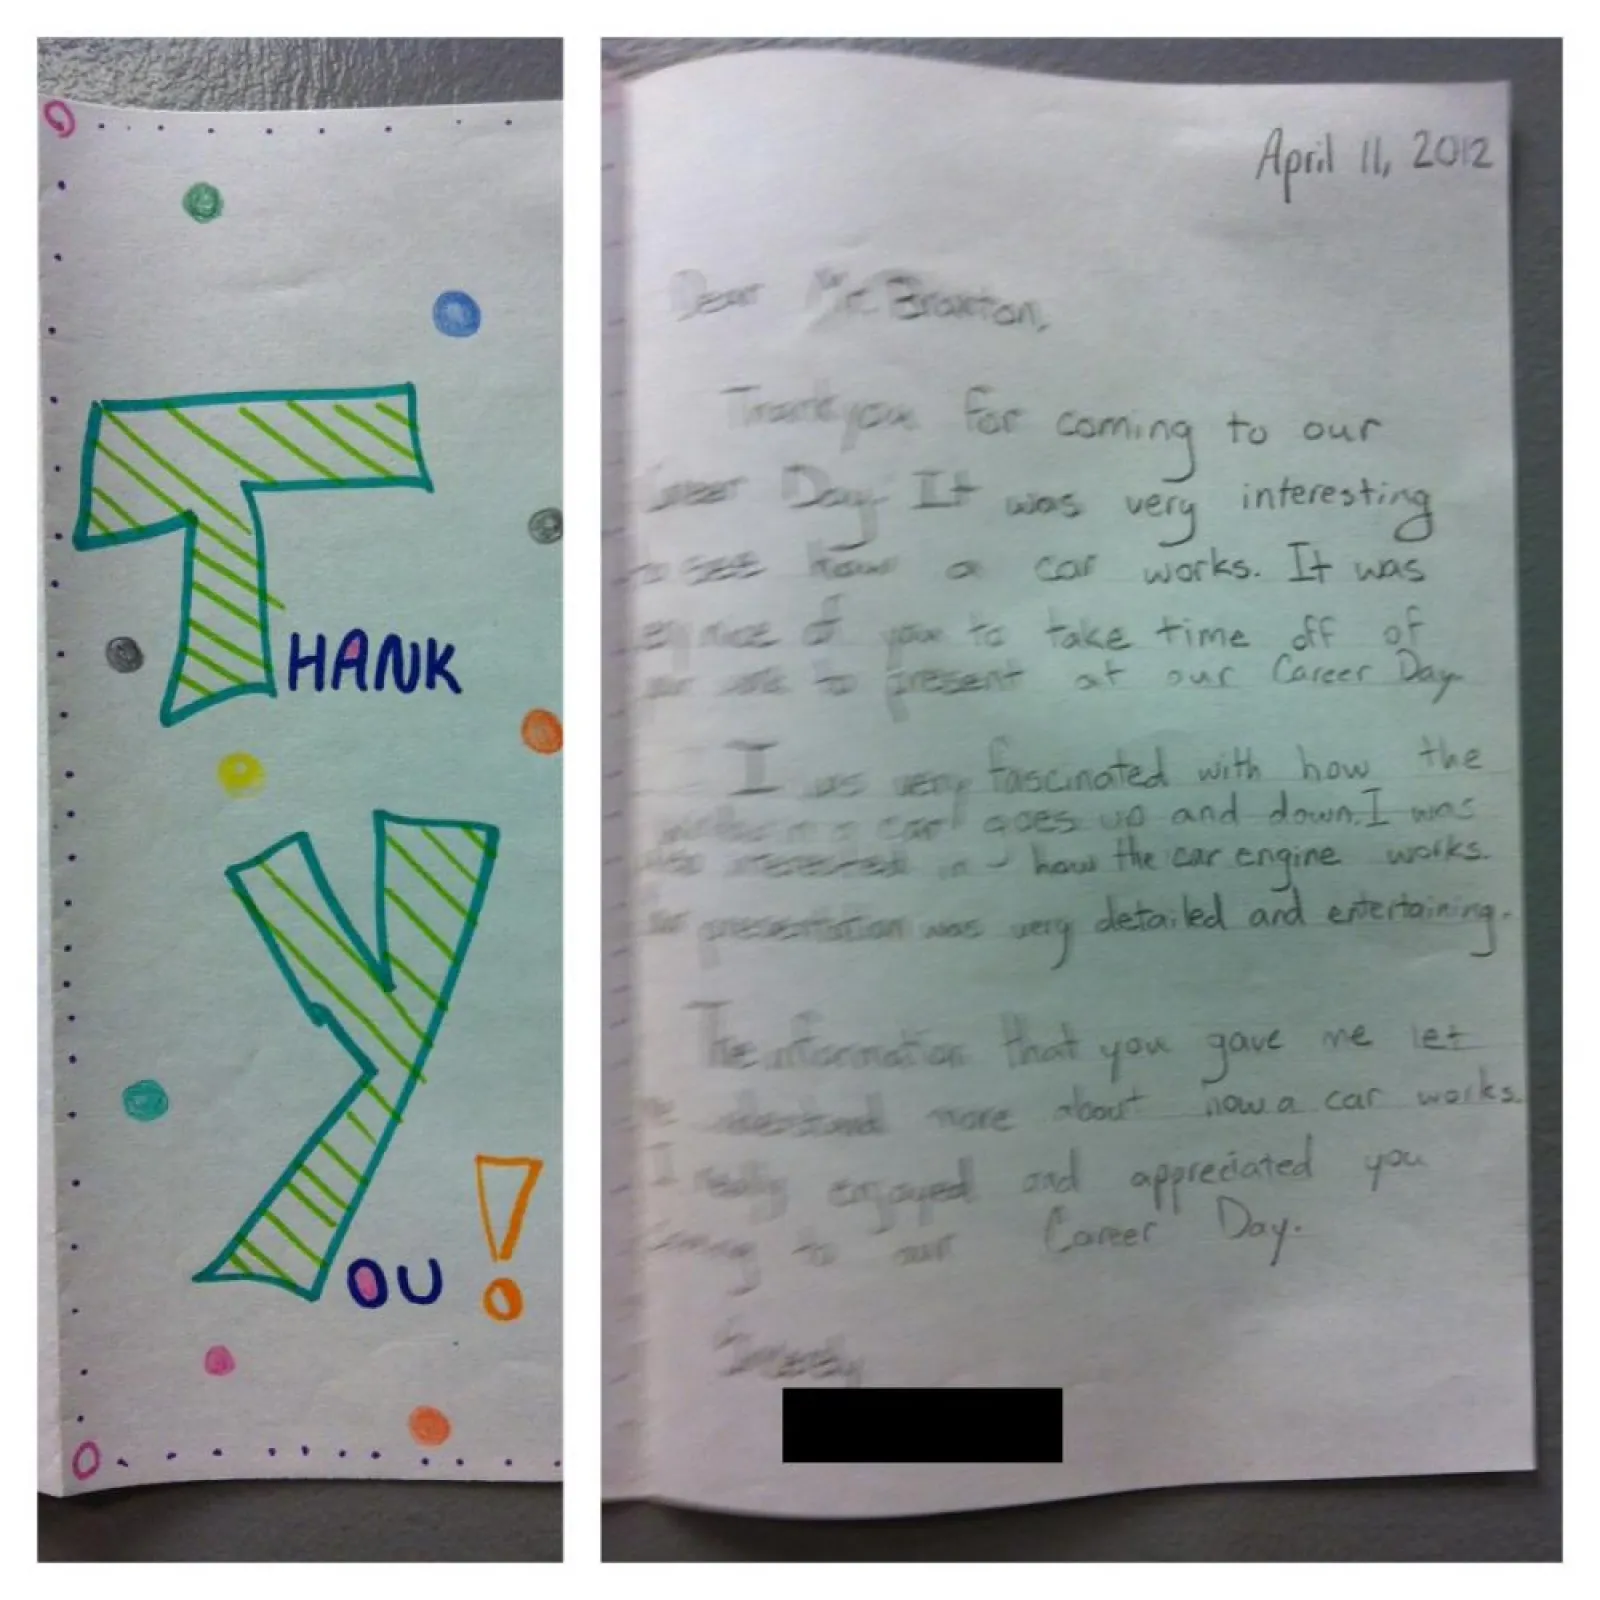 THANK
YOU!
April 11, 2012
Dear Mr. Braxton,
Thank you for coming to our
Career Day. It was very interesting
to see how a car works. It was
very nice of you to take time off of
your work to present at our Career Day.
I was very fascinated with how the
in a car goes up and down. I was
also interested in how the car engine works.
Your presentation was very detailed and entertaining.
The information that you gave me let
me understand more about how a car works.
I really enjoyed and appreciated you
coming to our Career Day.
Sincerely,